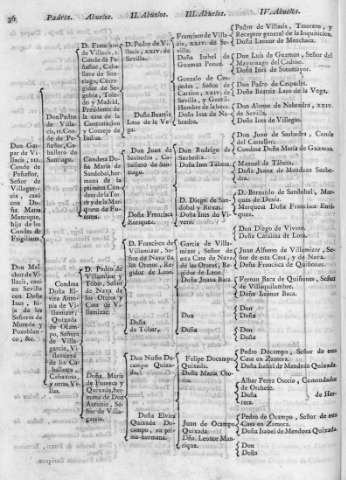 36 Padres. Abuelos. II. Abuelos. III. Abuelos. IV. Abuelos.
Don Gaspar de Villacis, Conde de Peñaflor, Señor de Villegarcia, casó con Doña Maria Manrique, hija de los Condes de Frigiliana.
Don Melchor de Villacis, casó en Sevilla con Doña Inès, hija de los Señores de
&c.
Don Pedro de Villacis, Conde de Peñaflor, Cavallero de Santiago.
Condesa Doña Antonia de Villamizar, Quixada de Ocampo, Señora de Villagarcia,
D. Francisco de Villacis, I. Conde de Peñaflor, Cavallero de Santiago, Corregidor de Segovia, Toledo y Madrid, Presidente de la casa de la Contratacion y Consejo de Indias.
Condesa Doña Maria de Sandobal, hermana de la primera Condesa de la Torre
D. Pedro de Villamizar y Tobar, Señor de Nava de los Oteros y Casa de Villamizar.
Doña Maria de Fonseca y Quixada, hermana de Don Antonio, Señor de Villagarcia.
D. Pedro de Villacis, XXIV. de Sevilla.
Doña Beatriz Laso de la Vega.
Don Juan de Saabedra, Cavallero de Santiago.
Doña Francisca Enriquez.
D. Francisco de Villamizar, Señor de Nava de los Oteros, Regidor de Leon.
Doña
de Tobar.
Don Nuño Docampo Quixada.
Doña Elvira Quixada Docampo, su prima hermana.
Francisco de Villacis, XXIV. de Sevilla.
Doña Isabel de Guzman Ponce.
Gonzalo de Cespedes, Señor de Carrion, XXIV. de Sevilla, y Gentil-Hombre de la boca.
Doña Inès de Nobendra.
Don Rodrigo de Saabedra.
Doña Inès de Tabora.
D. Diego de Sandobal y Roxas.
Doña Inès de Vivero.
Garcia de Villamizar, Señor de esta Casa de Nava de los Oteros, Regidor de Leon.
Doña Juana Baca.
Don
Doña
Felipe Docampo Quixada.
Doña Maria
Juan de Ocampo Quixada.
Dña. Leonor Manrique.
Don Pedro de Villacis, Tesorero, y Receptor general de la Inquisicion.
Doña Leonor de Menchaca.
Don Luis de Guzman, Señor del Mayorazgo del
Doña Inès de Sotomayor.
Don Pedro de Cespedes.
Doña Beatriz Laso de la Vega.
Don Alonso de Nobendra, XXIV. de Sevilla.
Doña Inès de Villegas.
Don Juan de Saabedra, Conde del Castellar.
Condesa Doña Maria de Guzman.
Manuel de Tabora.
Doña Juana de Mendoza Saabedra.
D. Bernardo de Sandobal, Marquès de Denia.
Marquesa Doña Francisca Enriquez.
Don Diego de Vivero.
Doña Catalina de Lora.
Juan Alfonso de Villamizar, Señor de esta Casa, y de Nava.
Doña Francisca de Quiñones.
Ferran Baca de Quiñones, Señor de Villaquilambre.
Doña Leonor Baca.
Don
Doña
Don
Doña
Pedro Docampo, Señor de esta Casa en Zamora.
Doña Isabel de Mendoza Quixada
Albar Perez Osorio, Comendador de
Doña de Herrera.
Pedro de Ocampo, Señor de esta Casa en Zamora.
Doña Isabel de Mendoza Quixada
Don
Doña